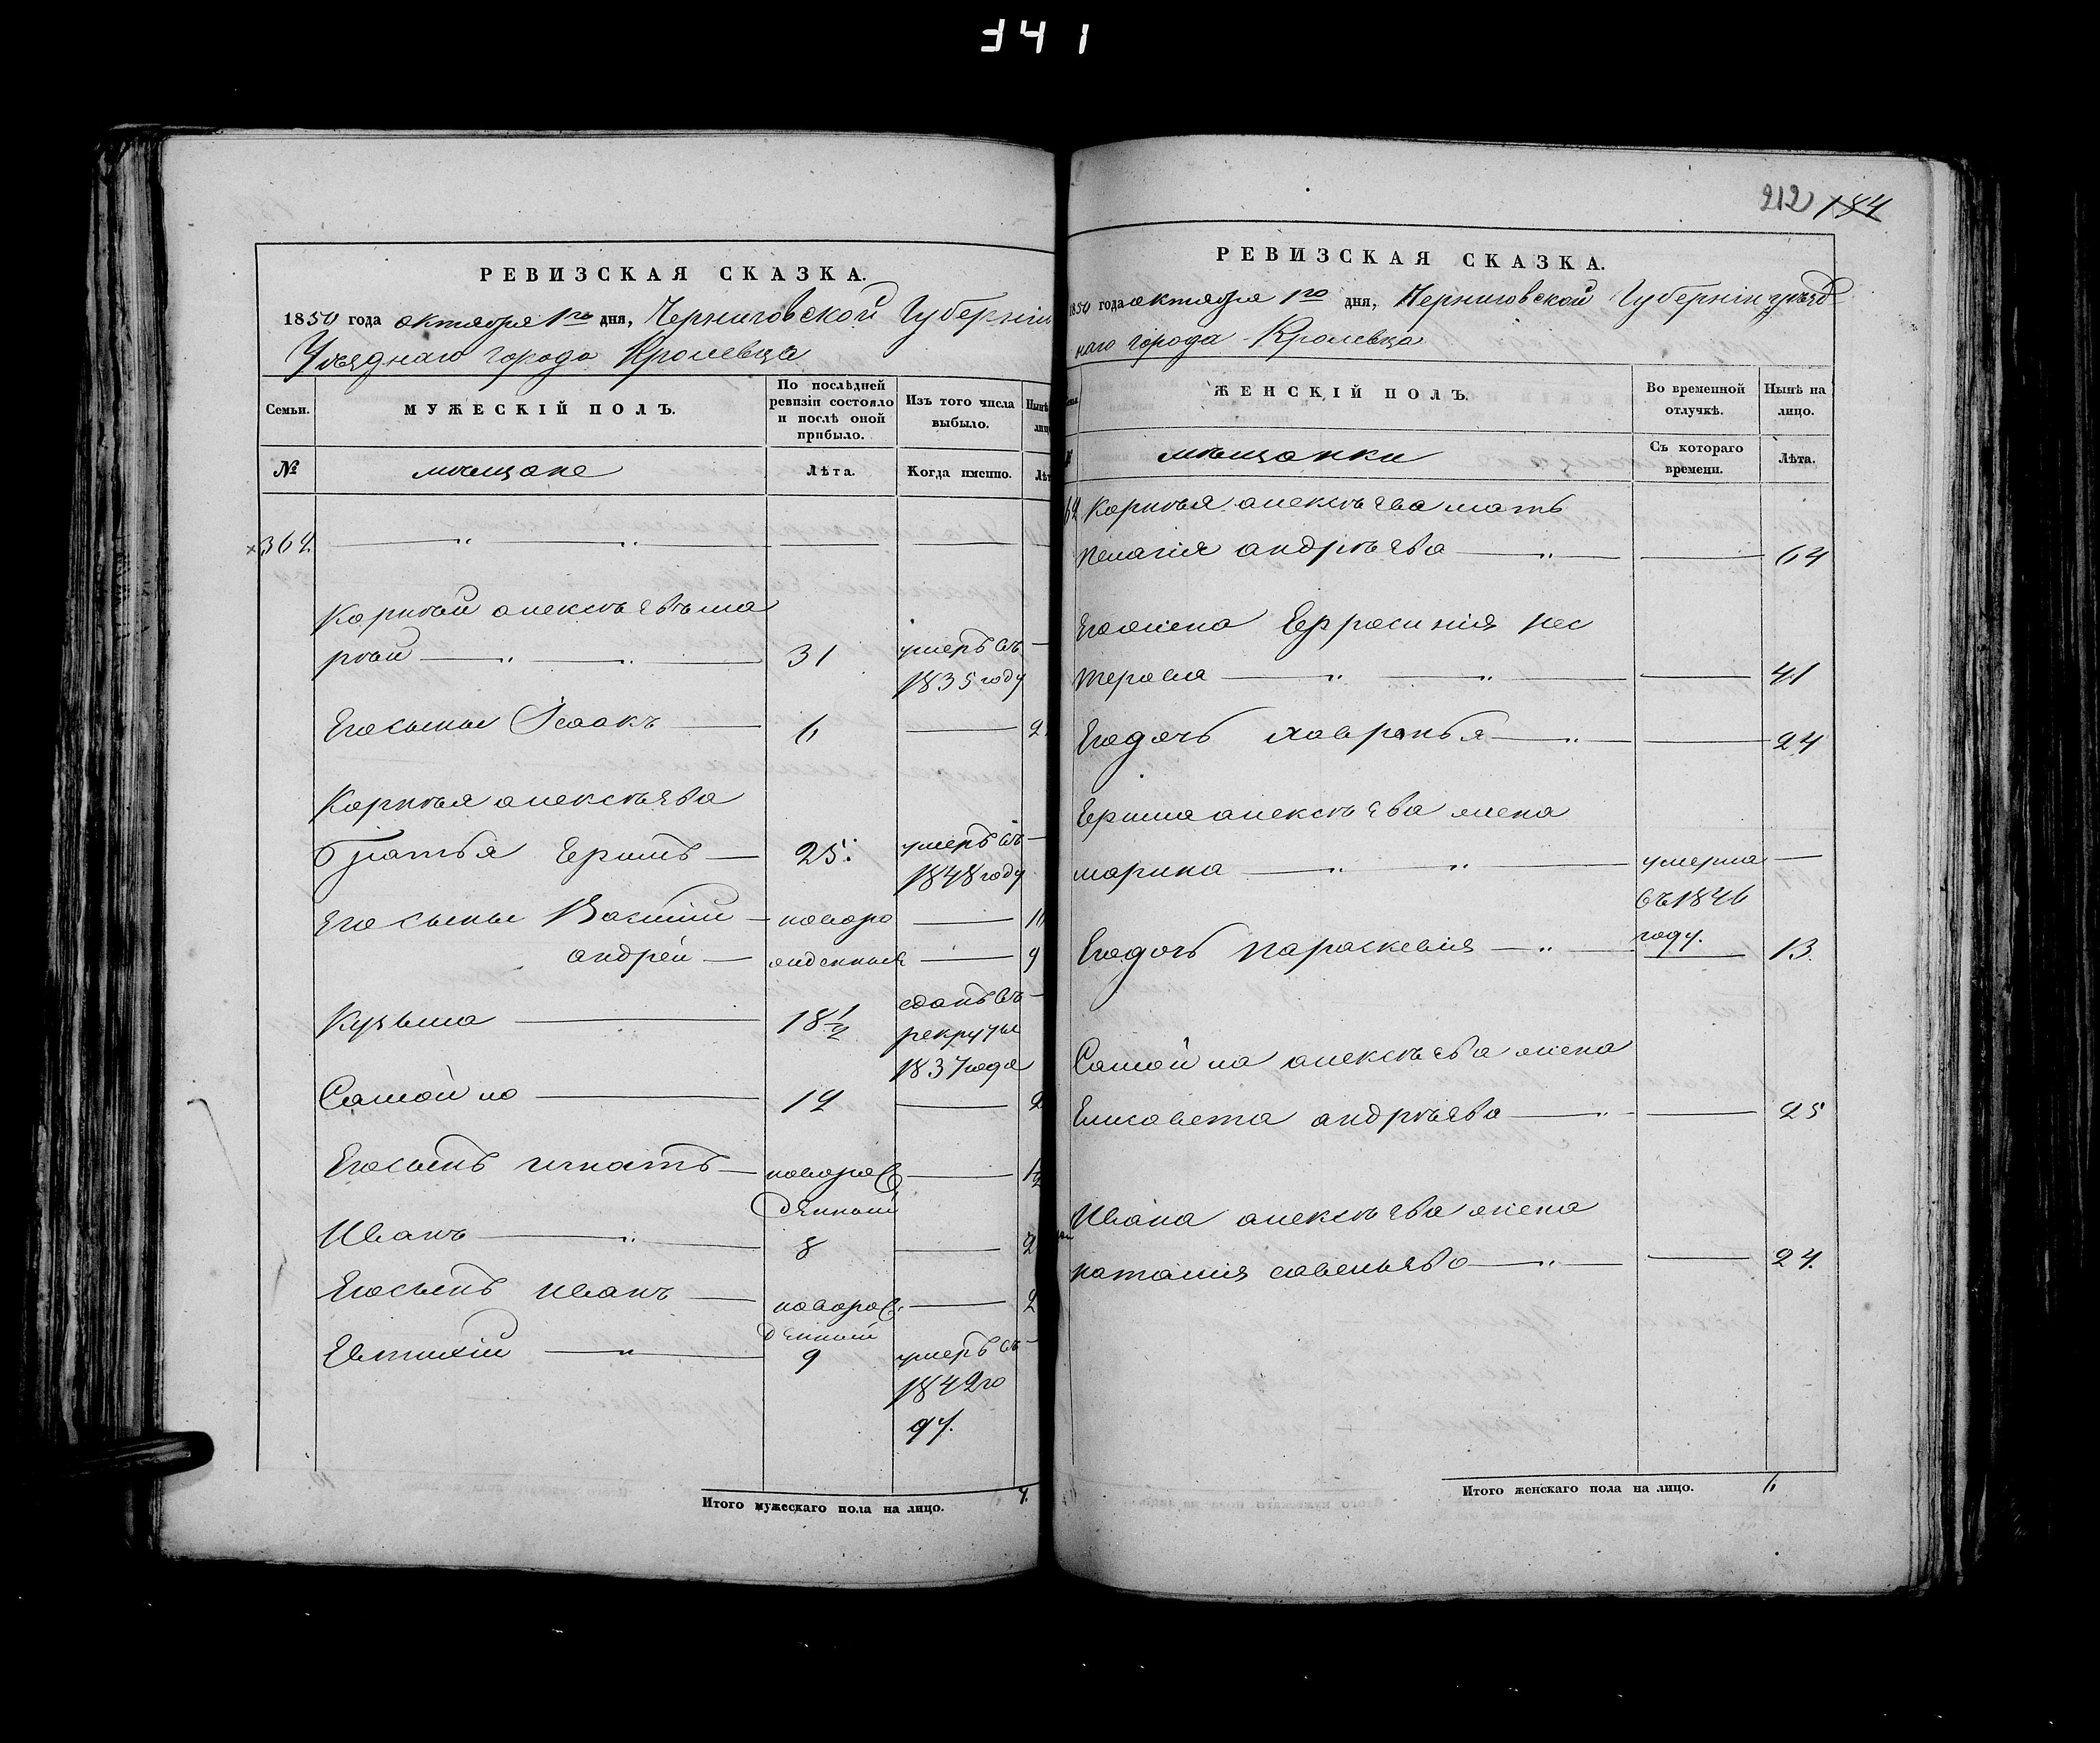 341
РЕВИЗСКАЯ СКАЗКА.
1850 года октября 1го дня, Черниговской Губерніи
Уѣзднаго города Кролевца
Семьи.
МУЖЕСКІЙ ПОЛЪ.
По послѣдней ревизіи состояло и послѣ оной прибыло.
Изъ того числа выбыло.
№
мѣщане
Лѣта.
Когда именно.
362.
Корнѣй алексѣевъ
31 умеръ въ
1835 году
Его сыны Исаакъ 6
Корнѣя алексѣева
братья Ермъ 25. умеръ въ
1848 году
Его сыны новоро
андрей жденные 9
Кузьма 18½ сданъ въ
рекруты
1837 года
Самойло 12
Его сынъ игнатъ новорож
денный
Иванъ 8
Его сынъ иванъ новорож
денный
Евтихій 9 умеръ въ
1842 го
ду.
Итого мужескаго пола на лицо. 7.
212 184
РЕВИЗСКАЯ СКАЗКА.
1850 года октября 1го дня, Черниговской Губерніи уѣзд
наго города Кролевца
ЖЕНСКІЙ ПОЛЪ.
Во временной отлучкѣ.
Нынѣ на лицо.
мѣщанки
Съ котораго времени.
Лѣта.
62 Корнѣя алексѣева мать
пелагія андрѣева 64
Его жена Ефросинія нес
терова 41
Его дочь хавронья 24
Ерма алексѣева жена
марина умерла
въ 1846
году.
Его дочь параскевія 13.
Самойла алексѣева жена
Елисавета андрѣева 25
Ивана алексѣева жена
наталия савельева 24.
Итого женскаго пола на лицо. 6